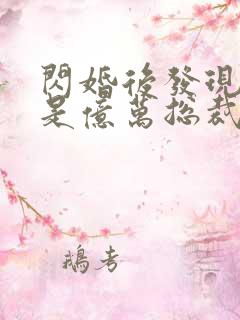 閃婚後發現
是億萬總裁
鵝考